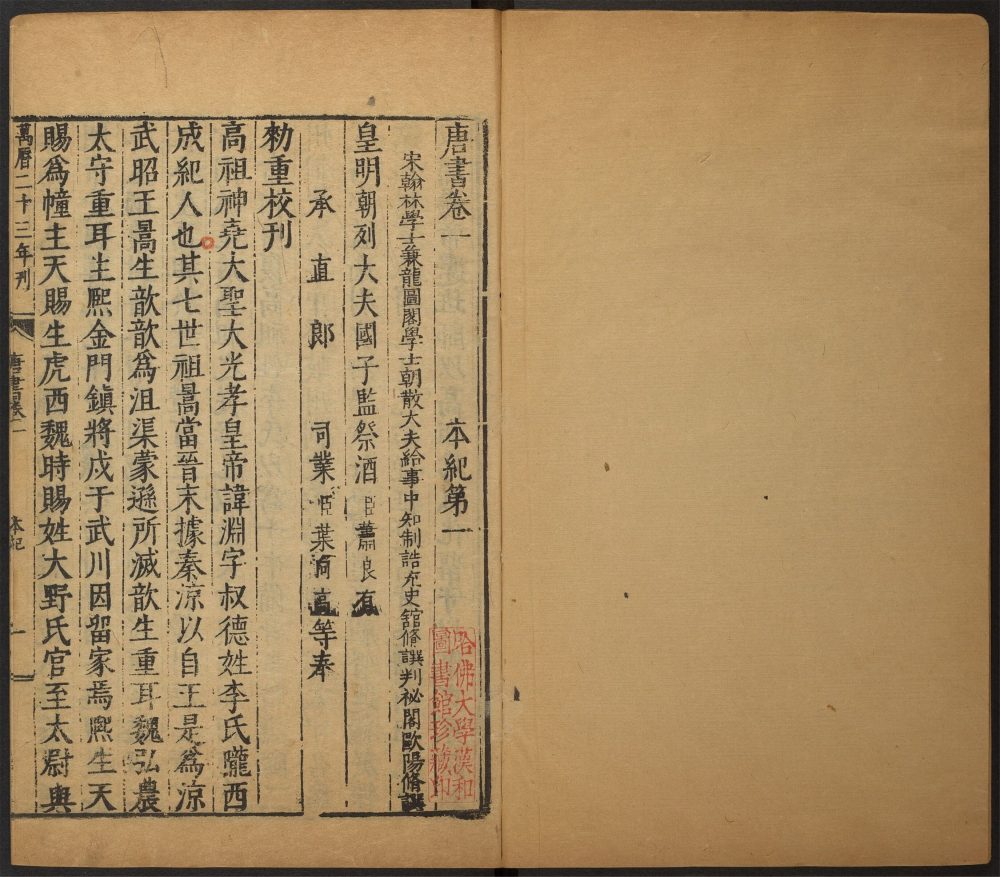 唐書卷一　本紀第一
宋翰林學士兼龍圖閣學士朝散大夫給事中知制誥充史館脩譔判祕閣歐陽脩譔
皇明朝列大夫國子監祭酒臣蕭良有
承直郎　司業臣葉向高等奉
勑重校刊
高祖神堯大聖大光孝皇帝諱淵字叔德姓李氏隴西
成紀人也其七世祖暠當晉末據秦涼以自王是為涼
武昭王暠生歆歆為沮渠蒙遜所滅歆生重耳魏弘農
太守重耳生熙金門鎮將戍于武川因留家焉熙生天
賜為幢主天賜生虎西魏時賜姓大野氏官至太尉與
萬曆二十三年刊　唐書卷一　本紀　一
哈佛大學漢和
圖書館珍藏印